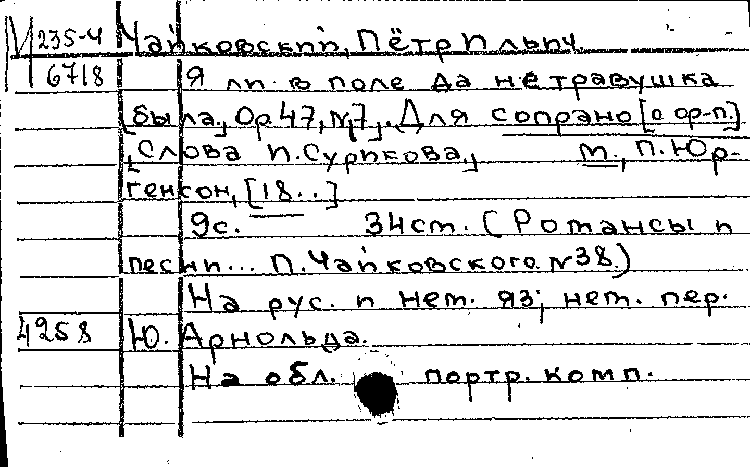 М 235-4 Чайковский, Пётр Ильич
6718 Я ли в поле да не травушка
[была, Ор. 47, N7]. Для сопрано [с ор-п.]
[Слова И. Сурикова,] М., П. Юр-
генсон, [18..]
9с. 34см. (Романсы и
песни... П. Чайковского. N38.)
На рус. и нем. яз; нем. пер.
4258 Ю. Арнольда.
На обл. портр. комп.